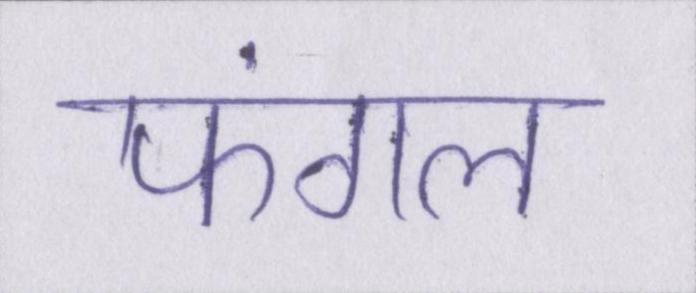 फंगल